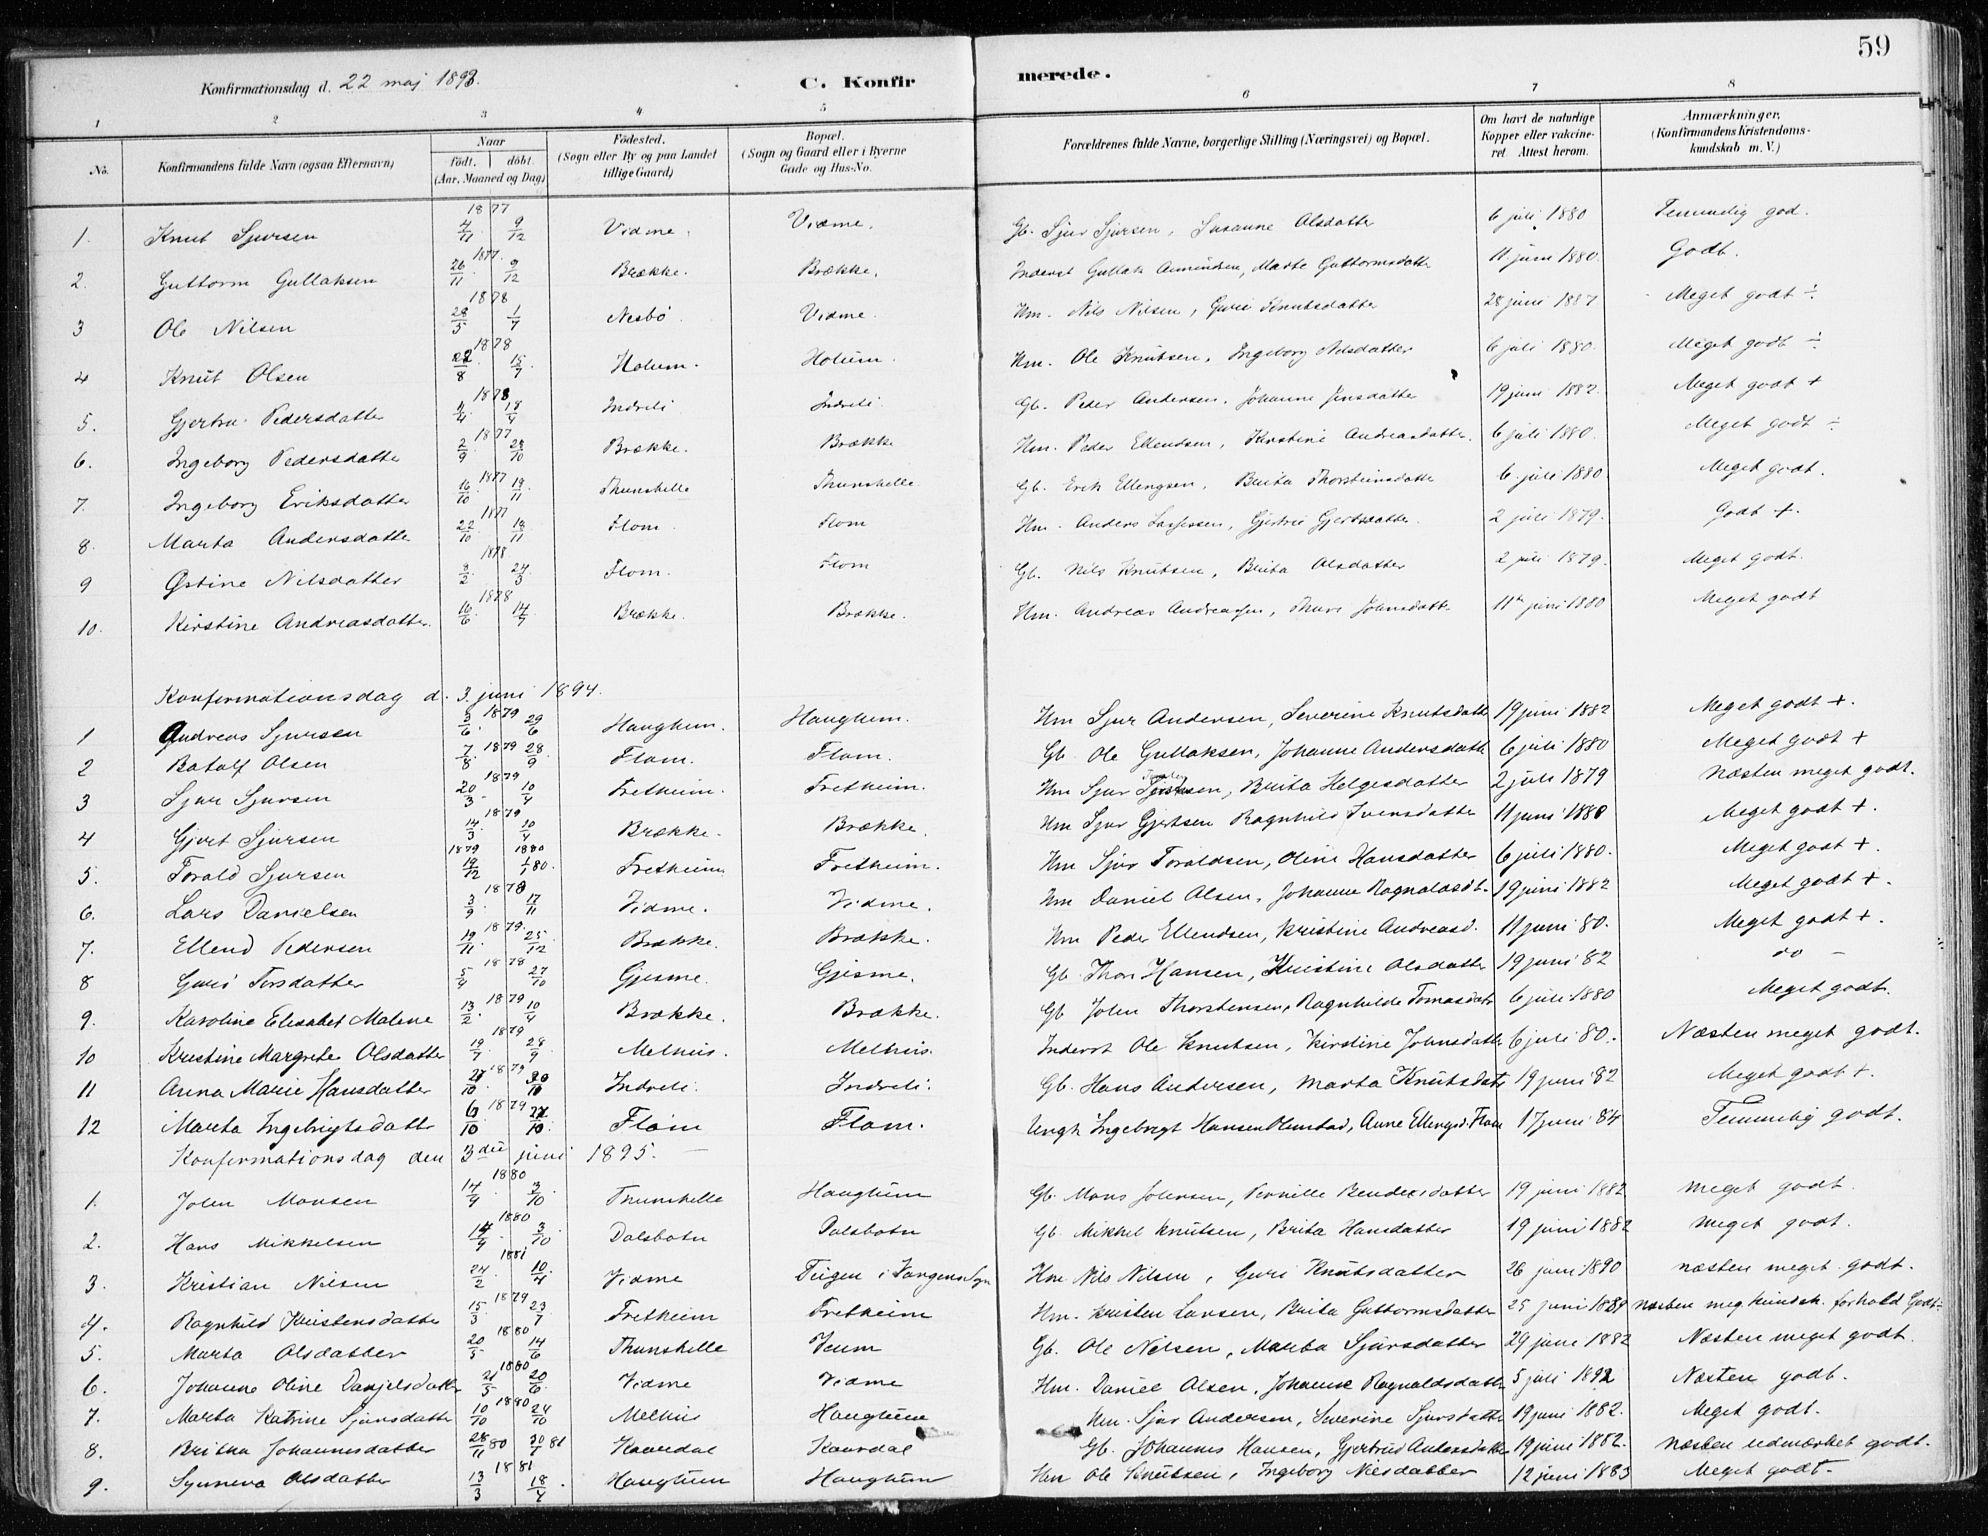 59
Konfirmationsdag d. 22 maj 1893.
C. Konfirmerede.
1 2 3 4 5 6 7 8
No. Konfirmandens fulde Navn (ogsaa Efternavn) Naar født. døbt. (Aar, Maaned og Dag) Fødested. (Sogn eller By og paa Landet tillige Gaard) Bopæl. (Sogn og Gaard eller i Byerne Gade og Hus-No. Forældrenes fulde Navne, borgerlige Stilling (Næringsvei) og Bopæl. Om havt de naturlige Kopper eller vakcineret. Attest herom. Anmærkninger, (Konfirmandens Kristendomskundskab m. V.)
1. Knut Sjursen 1877 4/11 9/12 Vidme. Vidme. Gb. Sjur Sjursen, Susanne Olsdatter 6 juli 1880 Temmelig god.
2. Guttorm Gullaksen 1877. 26/11 9/12 Brække. Brække. Inderst Gullak Amundsen, Marte Guttormsdatt 11 juni 1880. Godt.
3 Ole Nilsen 1878 28/5 1/7 Nesbö. Vidme. Hm. Nils Nilsen, Guri Knutsdatter 28 juni 1887 Meget godt ÷.
4 Knut Olsen 1878 15/7 Holum. Holum. Hm. Ole Knutsen, Ingeborg Nilsdatter 6 juli 1880. Meget godt ÷.
5. Gjertru Pedersdatter 1878 4/4 18/4 Indreli Indreli. Gb. Peder Andersen, Johanne Jensdatter 19 juni 1882. Meget godt +
6. Ingeborg Pedersdatte 1877 2/9 28/10 Brække. Brække Hm. Peder Ellendsen, Kirstine Andreasdatter. 6 juli 1880. Meget godt ÷
7. Ingeborg Eriksdatter 1877 16/10 19/11 Thunshelle Thunshelle Gb. Erik Ellengsen, Brita Thorsteinsdatte 6 juli 1880 Meget godt.
8. Marta Andersdatte 1877 22/10 18/11 Flom. Flom Hm. Anders Lassesen, Gjertrü Gjertsdatter. 2 juli 1879. Godt +.
9 Østine Nilsdatter 1878 24/3 Flom. Flom Gb. Nils Knutsen, Brita Olsdatter 2 juli 1879. Meget godt.
10. Kirstine Andreasdatter. 1878 16/6 14/7 Brække. Brække. Hm. Andreas Andreassen, Thuri Johnsdatt 11te juni 1880 Meget godt
Konfirmationsdag d. 3. juni 1894.
1 Andreas Sjursen 1879 3/6 29/6 Haughum. Haughum. Hm Sjur Andersen, Severine Knutsdatter 19 juni 1882 Meget godt +.
2 Botolf Olsen 1879 7/8 28/9 Flom. Flom. Gb. Ole Gullaksen, Johanne Andersdatt 6 juli 1880 Meget godt +
3 Sjur Sjursen 1879 20/3 10/4 Fretheim. Fretheim. Hm Sjur Brita Helgesdatter 2 juli 1879 Næsten meget godt.
4 Gjert Sjursen 1879 14/3 10/4 Brække. Brække. Hm Sjur Gjertsen Ragnhild Ivensdatter 11 juni 1880 Meget godt +.
5. Torald Sjursen 1879 19/12 1880 1/1 80. Fretheim Fretheim. Hm Sjur Toraldsen, Oline Hansdatter 6 juli 1880. Meget godt +.
6. Lars Danielsen 1878 3/9 17/11 Vidme. Vidme. Hm Daniel Olsen, Johanne Ragnaldsdt. 19 juni 1882 Meget godt +.
7. Ellend Pedersen 1879. 19/11 25/12 Brække. Brække. Hm Peder Ellendsen, Kristine Andreasd. 11 juni 80. Meget godt +.
8 Guri Torsdatter 1878 5/9 27/10 Gjesme. Gjesme. Gb. Thor Hansen, Kristine Olsdatter 19 juni 82 do –
9. Karoline Elisabet Malene 1879 13/2 10/4 Brække. Brække. Gb John Thorstensen, Ragnhilde Tomasdatr 6 juli 1880 Meget godt.
10 Kristine Margrete Olsdatter 1879 19/7 28/9 Melhüs. Melhüs. Inderst Ole Knutsen, Kirstine Johnsdatter 6 juli 80. Næsten meget godt.
11 Anna Marie Hansdatter 1879 Indreli. Indreli. Gb. Hans Andersen, Marta Knutsdatr 19 juni 82 Meget godt +.
12 Marta Ingebrigtsdatt 1879 Flom Flom. Ungk Ingebrigt Hansen Hemstad, Anne Ellengsd. Flom 17 juni 84 Temmelig godt.
Konfirmationsdag den 3die juni 1895. –
1. John Monsen 1880 14/9 3/10 Thunshelle Haughum Gb. Mons Johnsen, Pernille Bendixsdatter 19 juni 1882 Meget godt.
2. Hans Mikkelsen 1880 3/10 Dalsbotn Dalsbotn Gb. Mikkel Knutsen, Brita Hansdatter 19 juni 1882 Meget godt.
3. Kristian Nilsen 1881 24/2 10/4 Vidme Teigen i Vangens Sogn Hm Nils Nilsen, Guri Knutsdatter 26 juni 1890 næsten meget godt.
4. Ragnhild Kristensdatter 1879 15/3 23/7 Fretheim Fretheim Hm. Kristen Larsen, Brita Guttormsdatter 25 juni næsten meg. kundsk. forhold Godt
5. Marta Olsdatter 1880 20/5 14/6 Thunshelle Veum Gb. Ole Nilsen, Marta Sjursdatter 29 juni 1882 Næsten meget godt.
6. Johanne Oline Danjelsdatter 1880 21/5 20/6 Vidme Vidme Hm. Daniel Olsen, Johanne Ragnaldsdatter 5 juli 1892 Næsten godt.
7. Marta Katrine Sjursdatter 1880 10/10 24/10 Melhüs Haughum Hm. Sjur Andersen, Severine Sjursdatter 19 juni 1882. Meget godt.
8. Britha Johannesdatter 28/11 80 30/1 81 Kaardal Kaardal Gb. Johannes Hansen, Gjertrud Andersdatter 19 juni 1882. næsten udmærket godt.
9. Synneva Olsdatter 1881 13/3 18/4 Haughum Haughum Hm Ole Knutsen, Ingeborg Nilsdatter 12 juni 1883 Meget godt.